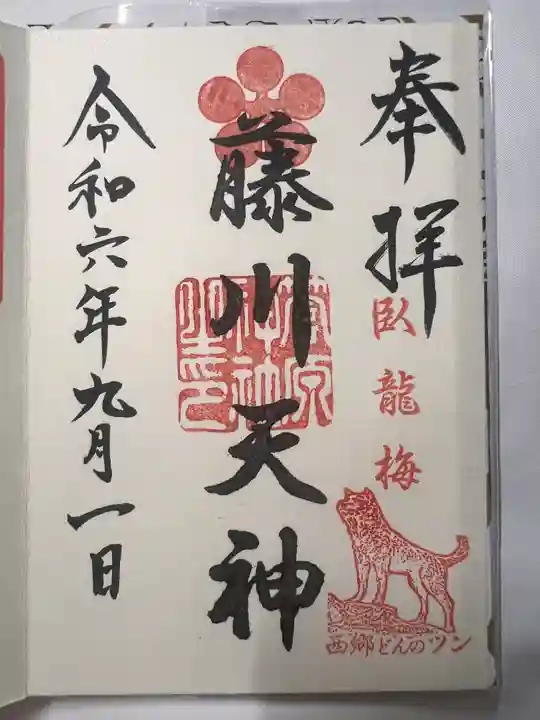 奉拝
臥龍梅
西郷どんのツン
藤川天神
令和六年九月一日